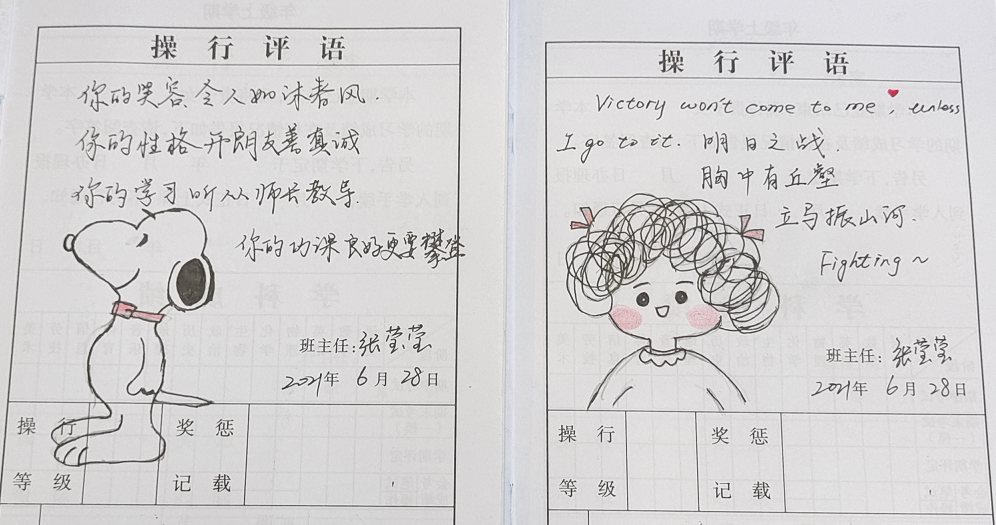 操 行 评 语
你的笑容令人如沐春风.
你的性格开朗友善真诚
你的学习听从师长教导.
你的功课良好更要攀登
班主任: 张莹莹
2021年 6月 28日
操 行
等 级
奖 惩
记 载
操 行 评 语
Victory won't come to me, unless
I go to it. 明日之战
胸中有丘壑
立马振山河.
Fighting~
班主任: 张莹莹
2021年 6月 28日
操 行
等 级
奖 惩
记 载